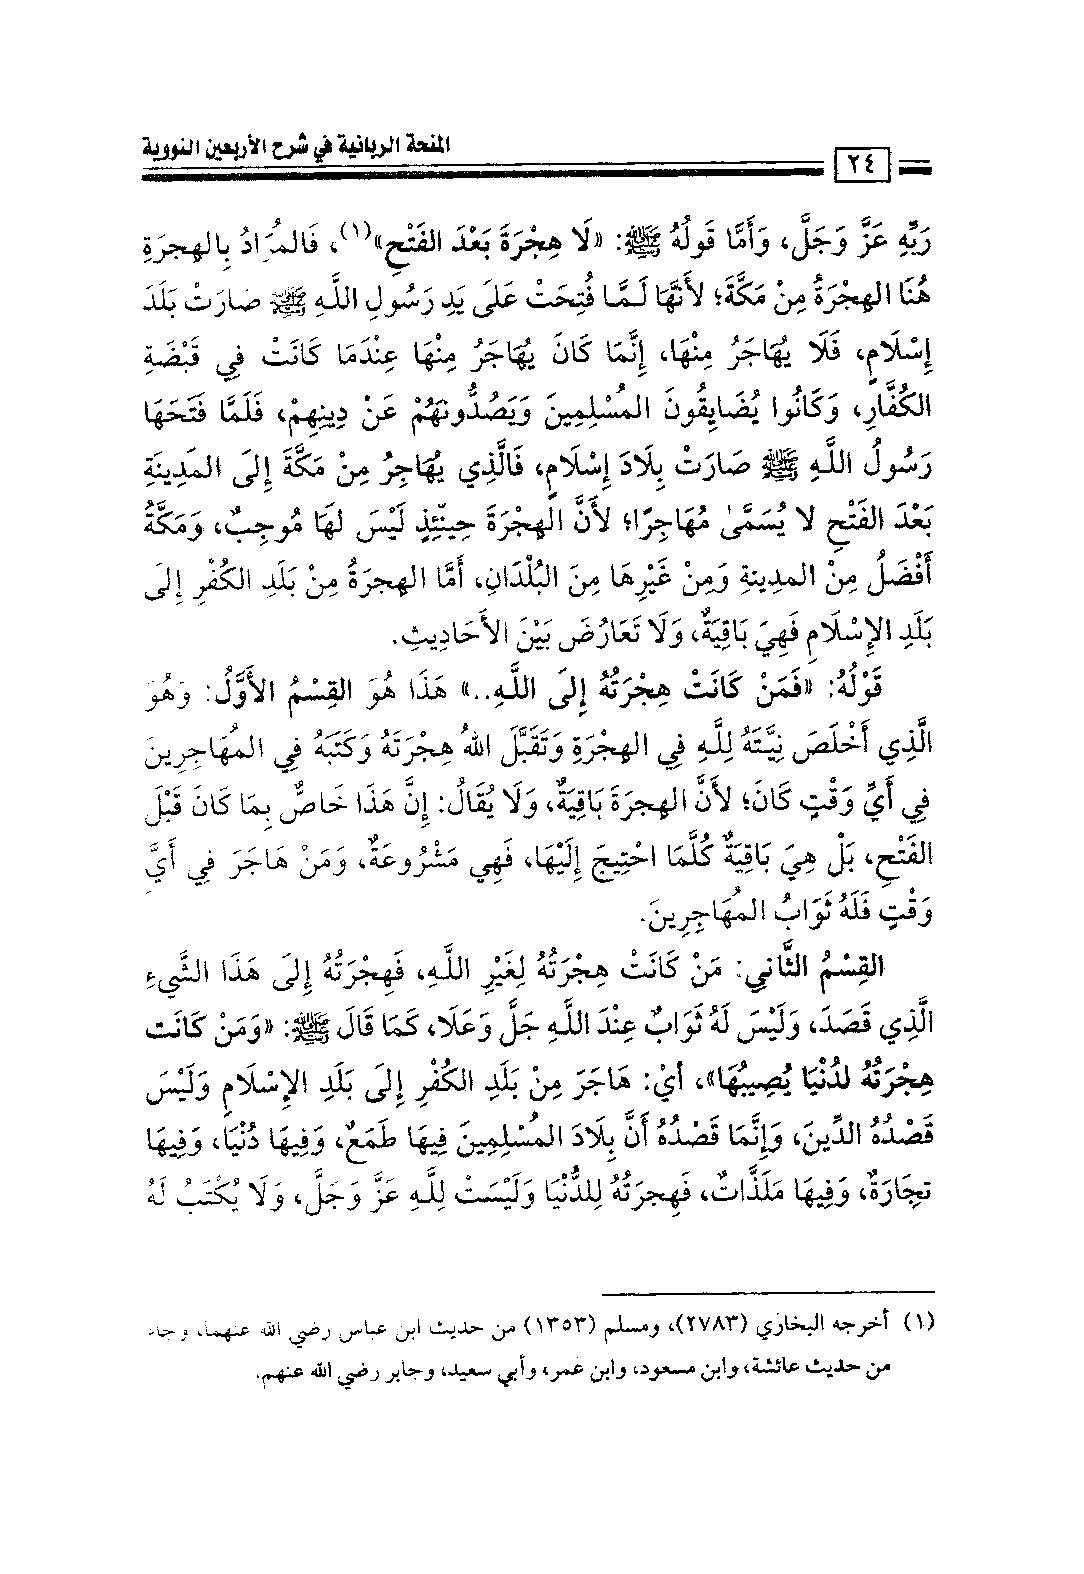 المنحة الربانية في شرح الأربعين النووية
٢٤
رَبِّهِ عَزَّ وَجَلَّ، وَأَمَّا قَولُهُ ﷺ: «لَا هِجْرَةَ بَعْدَ الفَتْحِ»(١)، فَالمُرَادُ بِالهِجرَةِ
هُنَا الهِجْرَةُ مِنْ مَكَّةَ؛ لأَنَّهَا لَـمَّا فُتِحَتْ عَلَى يَدِ رَسُولِ اللَّهِ ﷺ صَارَتْ بَلَدَ
إِسْلَامٍ، فَلَا يُهَاجَرُ مِنْهَا، إِنَّمَا كَانَ يُهَاجَرُ مِنْهَا عِنْدَمَا كَانَتْ فِي قَبْضَةِ
الكُفَّارِ، وَكَانُوا يُضَايِقُونَ المُسْلِمِينَ وَيَصُدُّونَهُمْ عَنْ دِينِهِمْ، فَلَمَّا فَتَحَهَا
رَسُولُ اللَّهِ ﷺ صَارَتْ بِلَادَ إِسْلَامٍ، فَالَّذِي يُهَاجِرُ مِنْ مَكَّةَ إِلَى المَدِينَةِ
بَعْدَ الفَتْحِ لا يُسَمَّىٰ مُهَاجِرًا؛ لأَنَّ الهِجْرَةَ حِينَئِذٍ لَيْسَ لَهَا مُوجِبٌ، وَمَكَّةُ
أَفْضَلُ مِنْ المدِينةِ وَمِنْ غَيْرِهَا مِنَ البُلْدَانِ، أَمَّا الهِجرَةُ مِنْ بَلَدِ الكُفْرِ إِلَى
بَلَدِ الإِسْلَامِ فَهِيَ بَاقِيَةٌ، وَلَا تَعَارُضَ بَيْنَ الأَحَادِيثِ.
قَوْلُهُ: «فَمَنْ كَانَتْ هِجْرَتُهُ إِلَى اللَّهِ..» هَذَا هُوَ القِسْمُ الأَوَّلُ: وَهُوَ
الَّذِي أَخْلَصَ نِيَّتَهُ لِلَّهِ فِي الهِجْرَةِ وَتَقَبَّلَ اللهُ هِجْرَتَهُ وَكَتَبَهُ فِي المُهَاجِرِينَ
فِي أَيِّ وَقْتٍ كَانَ؛ لأَنَّ الهِجرَةَ بَاقِيَةٌ، وَلَا يُقَالُ: إِنَّ هَذَا خَاصٌّ بِمَا كَانَ قَبْلَ
الفَتْحِ، بَلْ هِيَ بَاقِيَةٌ كُلَّمَا احْتِيجَ إِلَيْهَا، فَهِي مَشْرُوعَةٌ، وَمَنْ هَاجَرَ فِي أَيِّ
وَقْتٍ فَلَهُ ثَوَابُ المُهَاجِرِينَ.
القِسْمُ الثَّانِي: مَنْ كَانَتْ هِجْرَتُهُ لِغَيْرِ اللَّهِ، فَهِجْرَتُهُ إِلَى هَذَا الشَّيءِ
الَّذِي قَصَدَ، وَلَيْسَ لَهُ ثَوَابٌ عِنْدَ اللَّهِ جَلَّ وَعَلَا، كَمَا قَالَ ﷺ: «وَمَنْ كَانَت
هِجْرَتُهُ لدُنْيَا يُصِيبُهَا»، أيْ: هَاجَرَ مِنْ بَلَدِ الكُفْرِ إِلَى بَلَدِ الإِسْلَامِ وَلَيْسَ
قَصْدُهُ الدِّينَ، وَإِنَّمَا قَصْدُهُ أَنَّ بِلَادَ المُسْلِمِينَ فِيهَا طَمَعٌ، وَفِيهَا دُنْيَا، وَفِيهَا
تِجَارَةٌ، وَفِيهَا مَلَذَّاتٌ، فَهِجرَتُهُ لِلدُّنْيَا وَلَيْسَتْ لِلَّهِ عَزَّ وَجَلَّ، وَلَا يُكْتَبُ لَهُ
(١) أخرجه البخاري (٢٧٨٣)، ومسلم (١٣٥٣) من حديث ابن عباس رضي الله عنهما، وجاء
من حديث عائشة، وابن مسعود، وابن عمر، وأبي سعيد، وجابر رضي الله عنهم.